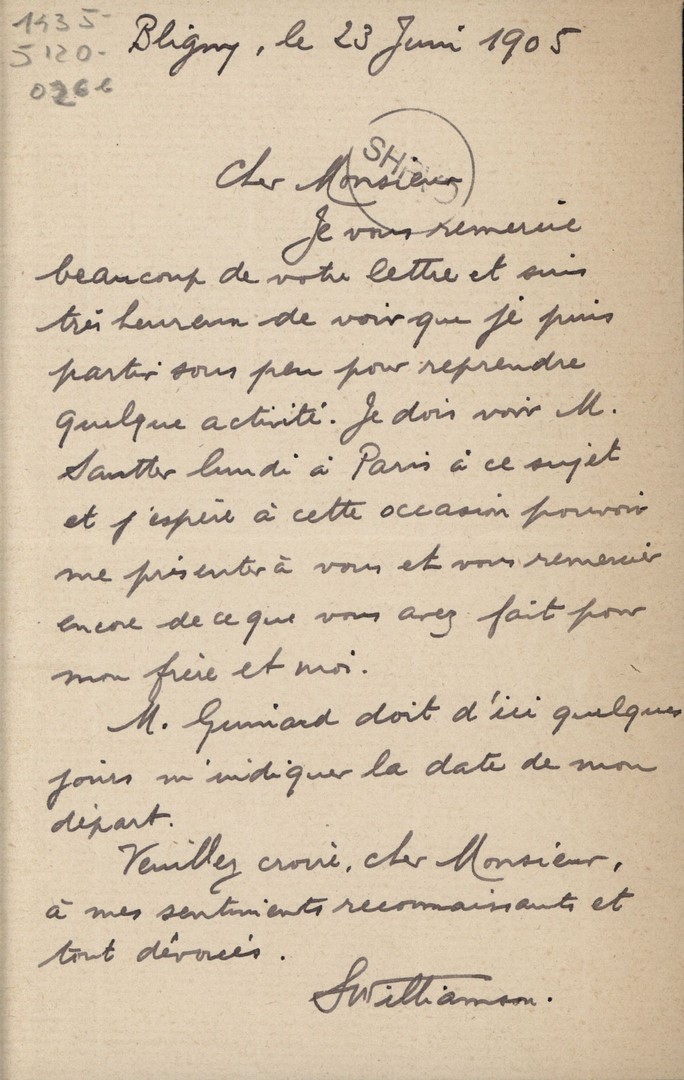 1435-
5120-
0266
Bligny, le 23 Juin 1905
SHPF
Cher Monsieur
Je vous remercie
beaucoup de votre lettre et suis
très heureux de voir que je puis
partir sous peu pour reprendre
quelque activité. Je dois voir M.
Sautter lundi à Paris à ce sujet
et j'espère à cette occasion pouvoir
me présenter à vous et vous remercier
encore de ce que vous avez fait pour
mon frère et moi.
M. Guiniard doit d'ici quelques
jours m'indiquer la date de mon
départ.
Veuillez croire, cher Monsieur,
à mes sentiments reconnaissants et
tout dévoués.
SWilliamson.